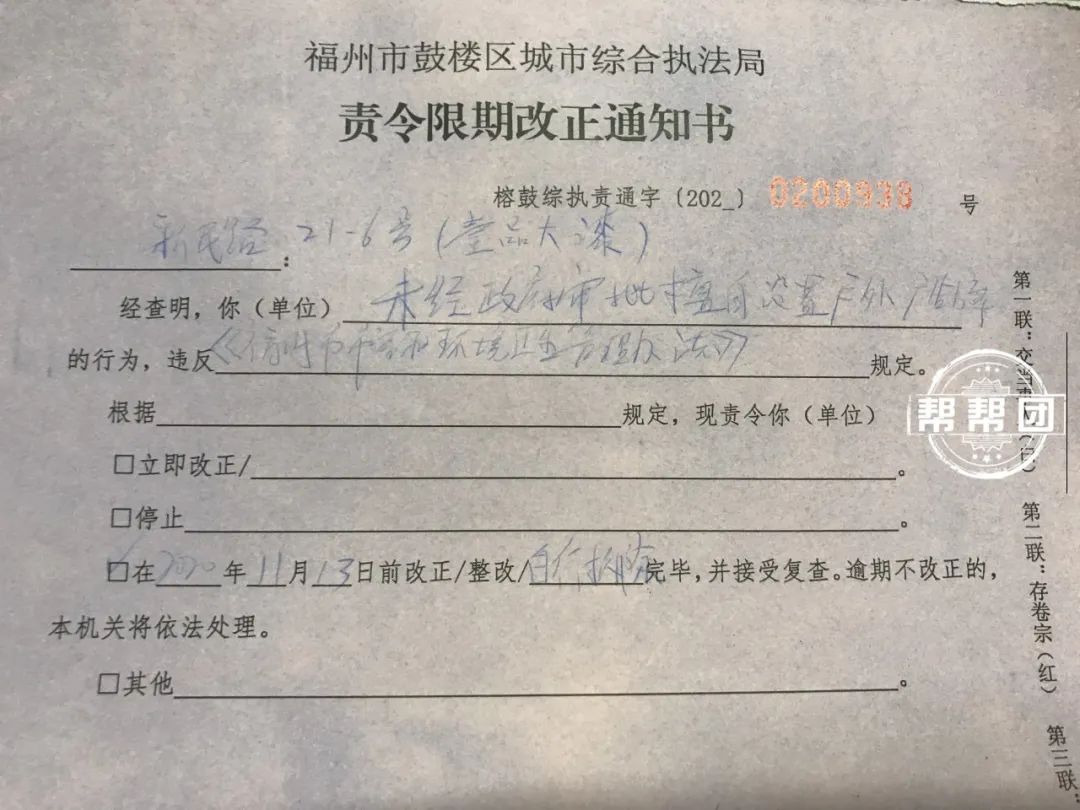 福州市鼓楼区城市综合执法局
责令限期改正通知书
榕鼓综执责通字〔202_〕 0200938 号
新民 21-6号(壹品大漆)
:
经查明，你（单位）未经政府审批擅自设置户外广告牌
的行为，违反《福州市市容和环境卫生管理办法》规定。
根据 规定，现责令你（单位）
□立即改正/ 。
□停止 。
☑在2020年11月13日前改正/整改/自行拆除完毕，并接受复查。逾期不改正的，
本机关将依法处理。
□其他 。
第一联：交当事人（白）
第二联：存卷宗（红）
第三联：
帮帮团